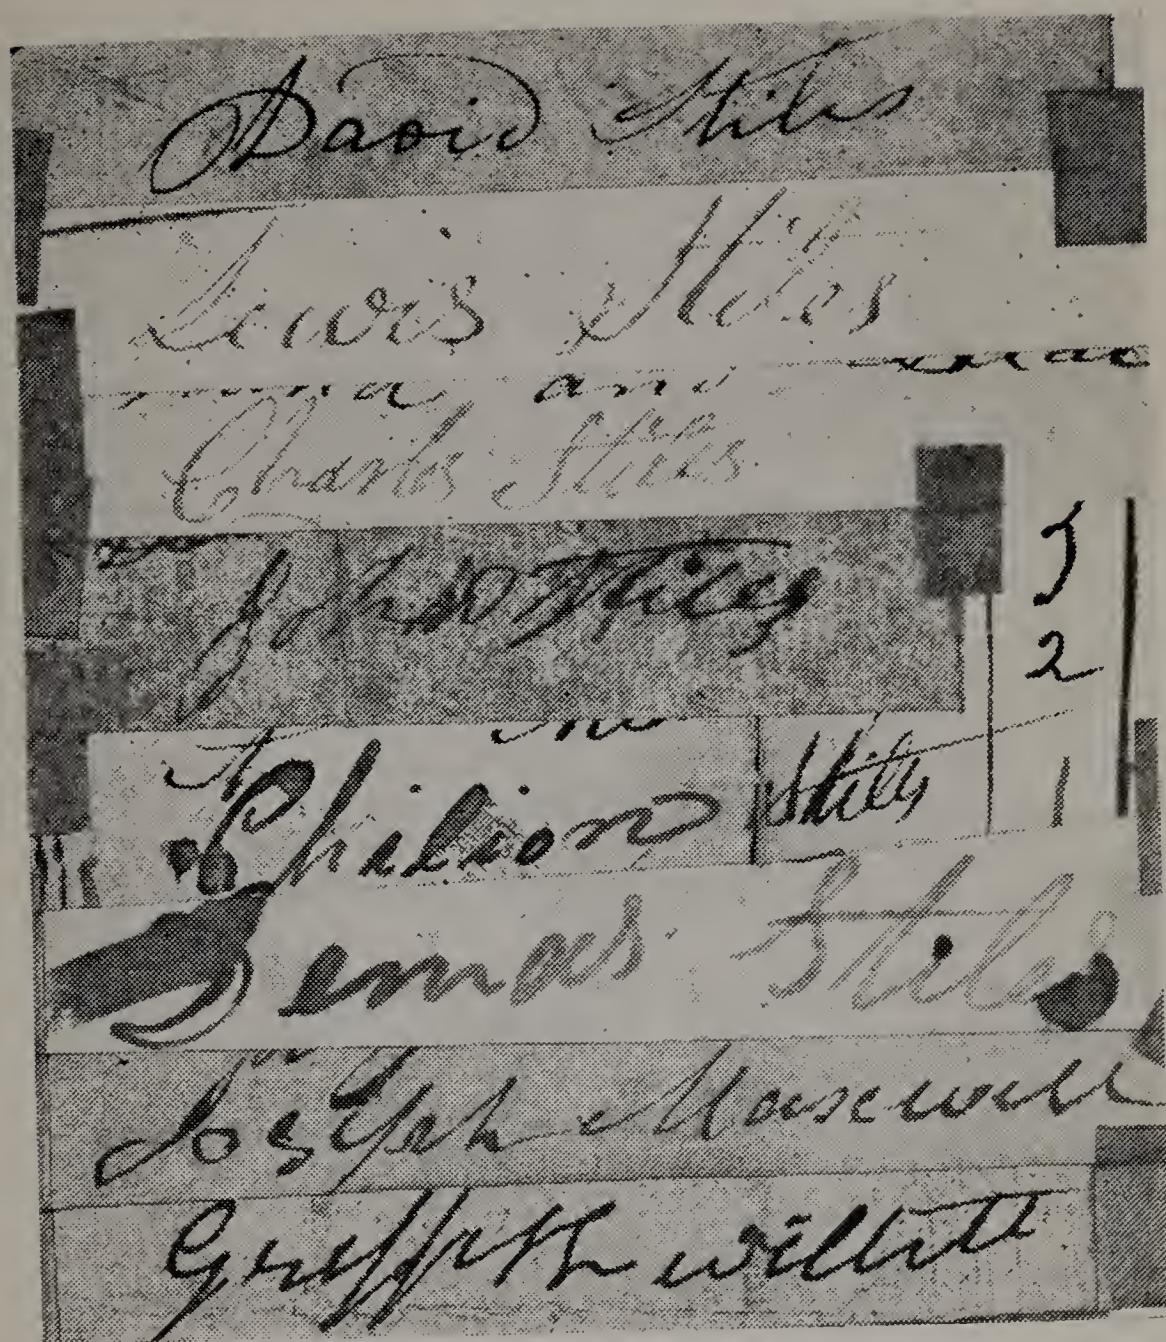 David Stiles
Lewis Stiles
and
Charles Stiles
John Stiles
2
Philion Stills
1
Demas Stiles
Joseph
Griffith Willitt